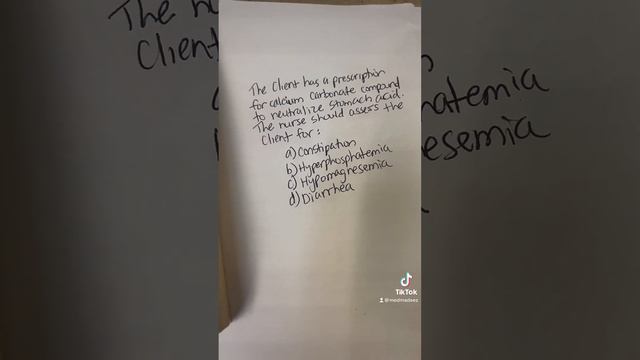 The n
Client
The Client has a prescription
for calcium carbonate compound
to neutralize stomach acid.
The nurse should assess the
Client for:
a) Constipation
b) Hyperphosphatemia
c) Hypomagnesemia
d) Diarrhea
hatemia
esemia
TikTok
@medmadeez